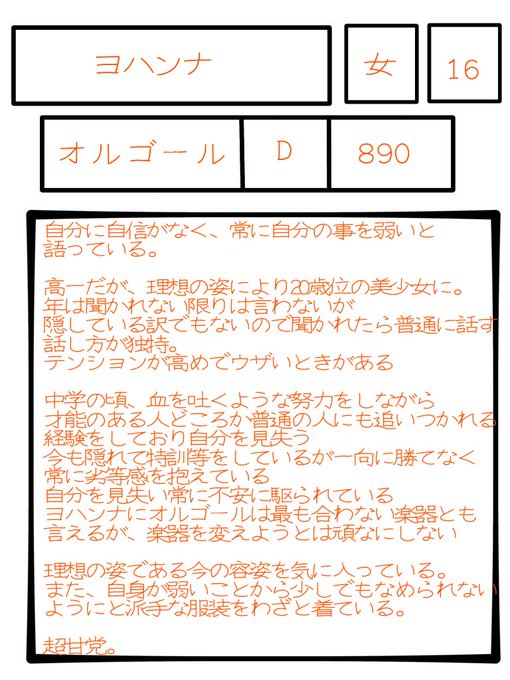 ヨハンナ
女
16
オルゴール
D
890
自分に自信がなく、常に自分の事を弱いと
語っている。
高一だが、理想の姿により20歳位の美少女に。
年は聞かれない限りは言わないが
隠している訳でもないので聞かれたら普通に話す
話し方が独特。
テンションが高めでウザいときがある
中学の頃、血を吐くような努力をしながら
才能のある人どころか普通の人にも追いつかれる
経験をしており自分を見失う
今も隠れて特訓等をしているが一向に勝てなく
常に劣等感を抱えている
自分を見失い常に不安に駆られている
ヨハンナにオルゴールは最も合わない楽器とも
言えるが、楽器を変えようとは頑なにしない
理想の姿である今の容姿を気に入っている。
また、自身が弱いことから少しでもなめられない
ようにと派手な服装をわざと着ている。
超甘党。